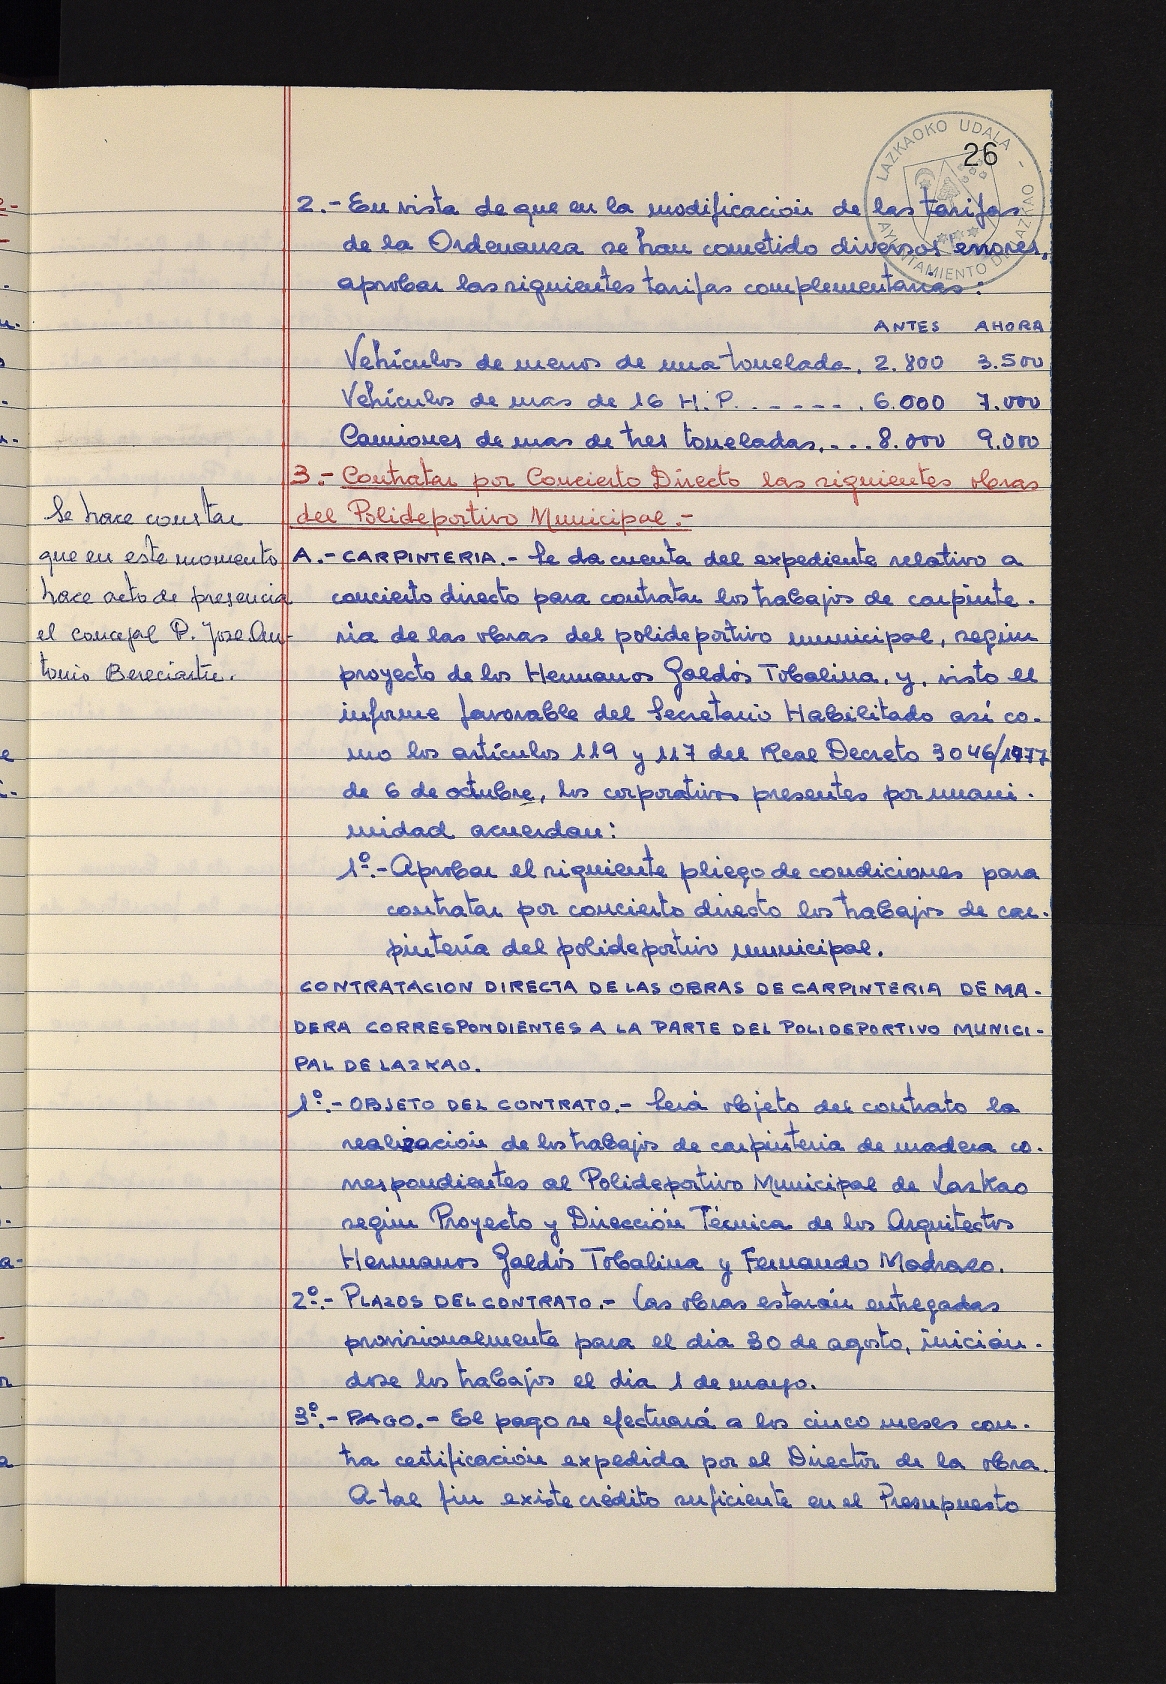 LAZKAOKO UDALA - AYUNTAMIENTO DE LAZKAO
26
2.- En vista de que en la modificación de las tarifas
de la Ordenanza se han cometido diversos errores,
aprobar las siguientes tarifas complementarias:
ANTES AHORA
Vehículos de menos de una tonelada. 2.800 3.500
Vehículos de mas de 16 H.P. - - - - - . 6.000 7.000
Camiones de mas de tres toneladas. - - . 8.000 9.000
3.- Contratar por Concierto Directo las siguientes obras
del Polideportivo Municipal.-
Se hace constar
que en este momento
hace acto de presencia
el concejal D. Jose An-
tonio Bereciartu.
A.- CARPINTERIA.- Se da cuenta del expediente relativo a
concierto directo para contratar los trabajos de carpinte-
ria de las obras del polideportivo municipal, según
proyecto de los Hermanos Galdós Tobalina, y, visto el
informe favorable del Secretario Habilitado así co-
mo los artículos 119 y 117 del Real Decreto 3046/1977
de 6 de octubre, los corporativos presentes por unani-
midad acuerdan:
1º.- Aprobar el siguiente pliego de condiciones para
contratar por concierto directo los trabajos de car-
pintería del polideportivo municipal.
CONTRATACION DIRECTA DE LAS OBRAS DE CARPINTERIA DE MA-
DERA CORRESPONDIENTES A LA PARTE DEL POLIDEPORTIVO MUNICI-
PAL DE LAZKAO.
1º.- OBJETO DEL CONTRATO.- Será objeto del contrato la
realización de los trabajos de carpinteria de madera co-
rrespondientes al Polideportivo Municipal de Lazkao
según Proyecto y Dirección Técnica de los Arquitectos
Hermanos Galdós Tobalina y Fernando Madrazo.
2º.- PLAZOS DEL CONTRATO.- Las obras estarán entregadas
provisionalmente para el dia 30 de agosto, inicián-
dose los trabajos el dia 1 de mayo.
3º.- PAGO.- El pago se efectuará a los cinco meses con-
tra certificación expedida por el Director de la obra.
A tal fin existe crédito suficiente en el Presupuesto